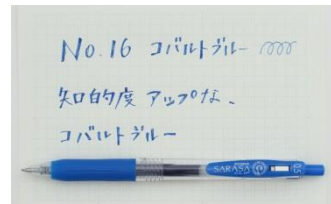 No.16 コバルトブルー
知的度アップな、
コバルトブルー
SARASA
0.5